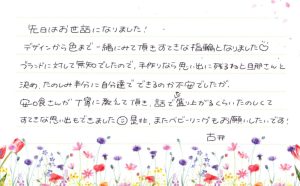 先日はお世話になりました!
デザインから色まで一緒にみて頂きすてきな指輪となりました☺
ブランドに対して無知でしたので、手作りなら思い出に残るねと旦那さんと
決め、たのしみ半分に自分達でできるのか不安でしたが、
さんが丁寧に教して頂き、話で盛り上がるくらいたのしくて
すてきな思い出もできました☺是非、またベビーリングもお願いしたいです!
古井